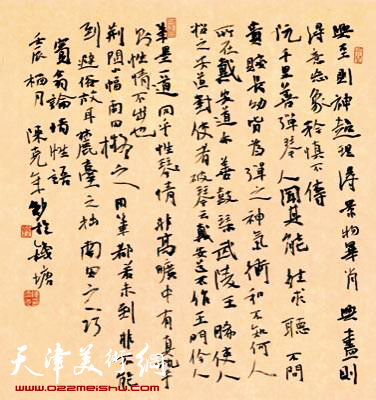 興至則神超理得景物畢肖興盡則
得意忘象矜慎不傳
阮千里善彈琴人聞其能往求聽不問
貴賤長幼皆為彈之神氣衝和不知何人
所在戴安道亦善鼓琴武陵王晞使人
招之安道對使者破琴云戴安道不作王門伶人
筆墨一道同乎性情非高曠中有真摯
則性情不出也
荆関小幅南田擬之用筆都若未到非不能
到避俗故耳麓臺之拙南田之巧
賓翁論情性語
壬辰 月 陳 年 於錢塘
天津美術網
www.022meishu.com